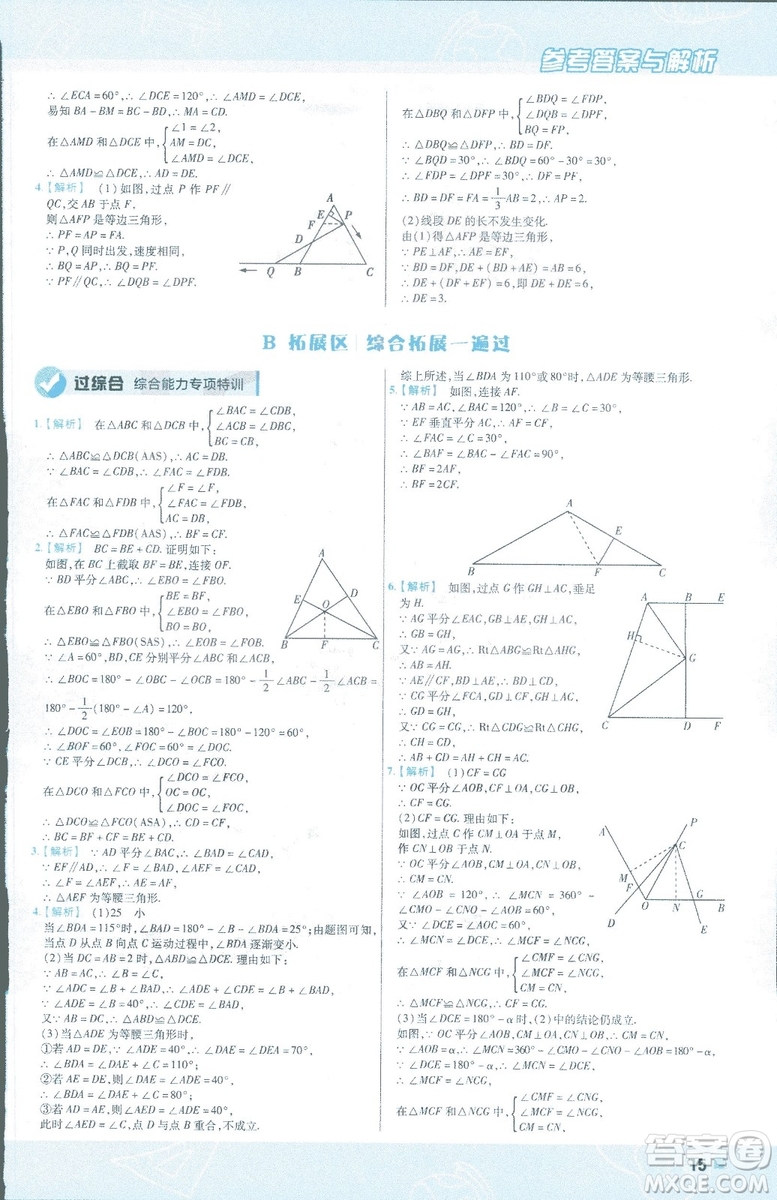 参考答案与解析
∴ ∠ECA=60°,∴ ∠DCE=120°,∴ ∠AMD=∠DCE,
易知 BA-BM=BC-BD,∴ MA=CD.
在△AMD 和△DCE 中,{∠1=∠2, AM=DC, ∠AMD=∠DCE,
∴ △AMD≌△DCE,∴ AD=DE.
4.【解析】 (1)如图,过点 P 作 PF∥
QC,交 AB 于点 F,
则△AFP 是等边三角形,
∴ PF=AP=AF.
∵ P,Q 同时出发,速度相同,
∴ BQ=AP,∴ BQ=PF.
∵ PF∥QC,∴ ∠DQB=∠DPF.
A
E
F P
D
Q B C
在△DBQ 和△DFP 中,{∠BDQ=∠FDP, ∠DQB=∠DPF, BQ=FP,
∴ △DBQ≌△DFP,∴ BD=DF.
∵ ∠BQD=30°,∴ ∠BDQ=60°-30°=30°,
∴ ∠BDQ=∠FDP=∠FPD=30°,
∴ BD=DF=FA=1/3AB=2,∴ AP=2.
(2)线段 DE 的长不发生变化.
由(1)得△AFP 是等边三角形,
∵ PE⊥AF,∴ AE=EF.
∵ BD=DF,DE+(BD+AE)=AB=6,
∴ DE+(DF+EF)=6,即 DE+DE=6,
∴ DE=3.
B 拓展区 综合拓展一遍过
过综合 综合能力专项特训
1.【解析】 在△ABC 和△DCB 中,{∠BAC=∠CDB, ∠ACB=∠DBC, BC=CB,
∴ △ABC≌△DCB(AAS),∴ AC=DB.
∵ ∠BAC=∠CDB,∴ ∠FAC=∠FDB.
在△FAC 和△FDB 中,{∠F=∠F, ∠FAC=∠FDB, AC=DB,
∴ △FAC≌△FDB(AAS),∴ BF=CF.
2.【解析】 BC=BE+CD. 证明如下:
如图,在 BC 上截取 BF=BE,连接 OF.
∵ BD 平分∠ABC,∴ ∠EBO=∠FBO.
在△EBO 和△FBO 中,{BE=BF, ∠EBO=∠FBO, BO=BO,
∴ △EBO≌△FBO(SAS),∴ ∠EOB=∠FOB.
∵ ∠A=60°,BD,CE 分别平分∠ABC 和∠ACB,
∴ ∠BOC=180°-∠OBC-∠OCB=180°-1/2∠ABC-1/2∠ACB=
180°-1/2(180°-∠A)=120°,
∴ ∠DOC=∠EOB=180°-∠BOC=180°-120°=60°,
∴ ∠BOF=60°,∴ ∠COF=60°,∴ ∠DOC=∠FOC.
∵ CE 平分∠DCB,∴ ∠DCO=∠FCO.
在△DCO 和△FCO 中,{∠DCO=∠FCO, OC=OC, ∠DOC=∠FOC,
∴ △DCO≌△FCO(ASA),∴ CD=CF,
∴ BC=BF+CF=BE+CD.
A
E D
O
B F C
3.【解析】 ∵ AD 平分∠BAC,∴ ∠BAD=∠CAD,
∵ EF∥AD,∴ ∠F=∠CAD,∠BAD=∠AEF,
∴ ∠F=∠AEF,∴ AF=AE,
∴ △AEF 为等腰三角形.
4.【解析】 (1)25 小
当∠BDA=115°时,∠BAD=180°-∠B-∠BDA=25°;由题图可知,
当点 D 从点 B 向点 C 运动过程中,∠BDA 逐渐变小.
(2)当 DC=2 时,△ABD≌△DCE. 理由如下:
∵ AB=AC,∴ ∠B=∠C,
∵ ∠ADC=∠ADE+∠CDE=∠B+∠BAD,
∵ ∠ADE=40°,∠B=40°,∴ ∠CDE=∠BAD,
又∵ AB=DC,∴ △ABD≌△DCE.
(3)当△ADE 为等腰三角形时,
①若 AD=DE,∵ ∠ADE=40°,∴ ∠DAE=∠DEA=70°,
∴ ∠BDA=∠DAE+∠C=110°;
②若 AE=DE,则∠DAE=∠ADE=40°,
∴ ∠BDA=∠DAE+∠C=80°;
③若 AD=AE,则∠ADE=∠AED=40°,
此时∠AED=∠C,点 D 与点 B 重合,不成立.
综上所述,当∠BDA 为 110°或 80°时,△ADE 为等腰三角形.
5.【解析】 如图,连接 AF.
∵ AB=AC,∠BAC=120°,∴ ∠B=∠C=30°.
∵ EF 垂直平分 AC,∴ AF=CF,
∴ ∠FAC=∠C=30°,
∴ ∠BAF=∠BAC-∠FAC=90°,
∴ BF=2AF,
∴ BF=2CF.
A
E
B F C
6.【解析】 如图,过点 G 作 GH⊥AC,垂足
为 H.
∵ AG 平分∠EAC,GB⊥AE,GH⊥AC,
∴ GB=GH.
又∵ AG=AG,∴ Rt△ABG≌Rt△AHG,
∴ AB=AH.
∵ AE∥CF,GB⊥AE,∴ GD⊥CF.
又∵ CG 平分∠FCA,GD⊥CF,GH⊥AC,
∴ GD=GH,
又∵ CG=CG,∴ Rt△CDG≌Rt△CHG,
∴ CD=CH,
∴ AB+CD=AH+CH=AC.
A B E
H
G
C D F
7.【解析】 (1)CF=CG
∵ OC 平分∠AOB,CF⊥OA,CG⊥OB,∴ CF=CG.
(2)CF=CG. 理由如下:
如图,过点 C 作 CM⊥OA 于点 M,
CN⊥OB 于点 N.
∵ OC 平分∠AOB,CM⊥OA,CN⊥OB,
∴ CM=CN.
∵ ∠AOB=120°,∴ ∠MCN=360°-
∠CMO-∠CNO-∠AOB=60°,
∴ ∠MCN=∠DCE,∴ ∠MCF=∠NCG.
在△MCF 和△NCG 中,{∠CMF=∠CNG, ∠MCF=∠NCG, CM=CN,
∴ △MCF≌△NCG,∴ CF=CG.
(3)当∠DCE=180°-α 时,(2)中的结论仍成立.
如图,∵ OC 平分∠AOB,CM⊥OA,CN⊥OB,∴ CM=CN,
∵ ∠AOB=α,∴ ∠MCN=360°-∠CMO-∠CNO-∠AOB=180°-α,
∵ ∠DCE=180°-α,∴ ∠MCN=∠DCE,
∴ ∠MCF=∠NCG.
在△MCF 和△NCG 中,{∠CMF=∠CNG, ∠MCF=∠NCG, CM=CN,
A P
C
M
F G
O N B
D E
15
答案圈
MXQE.COM